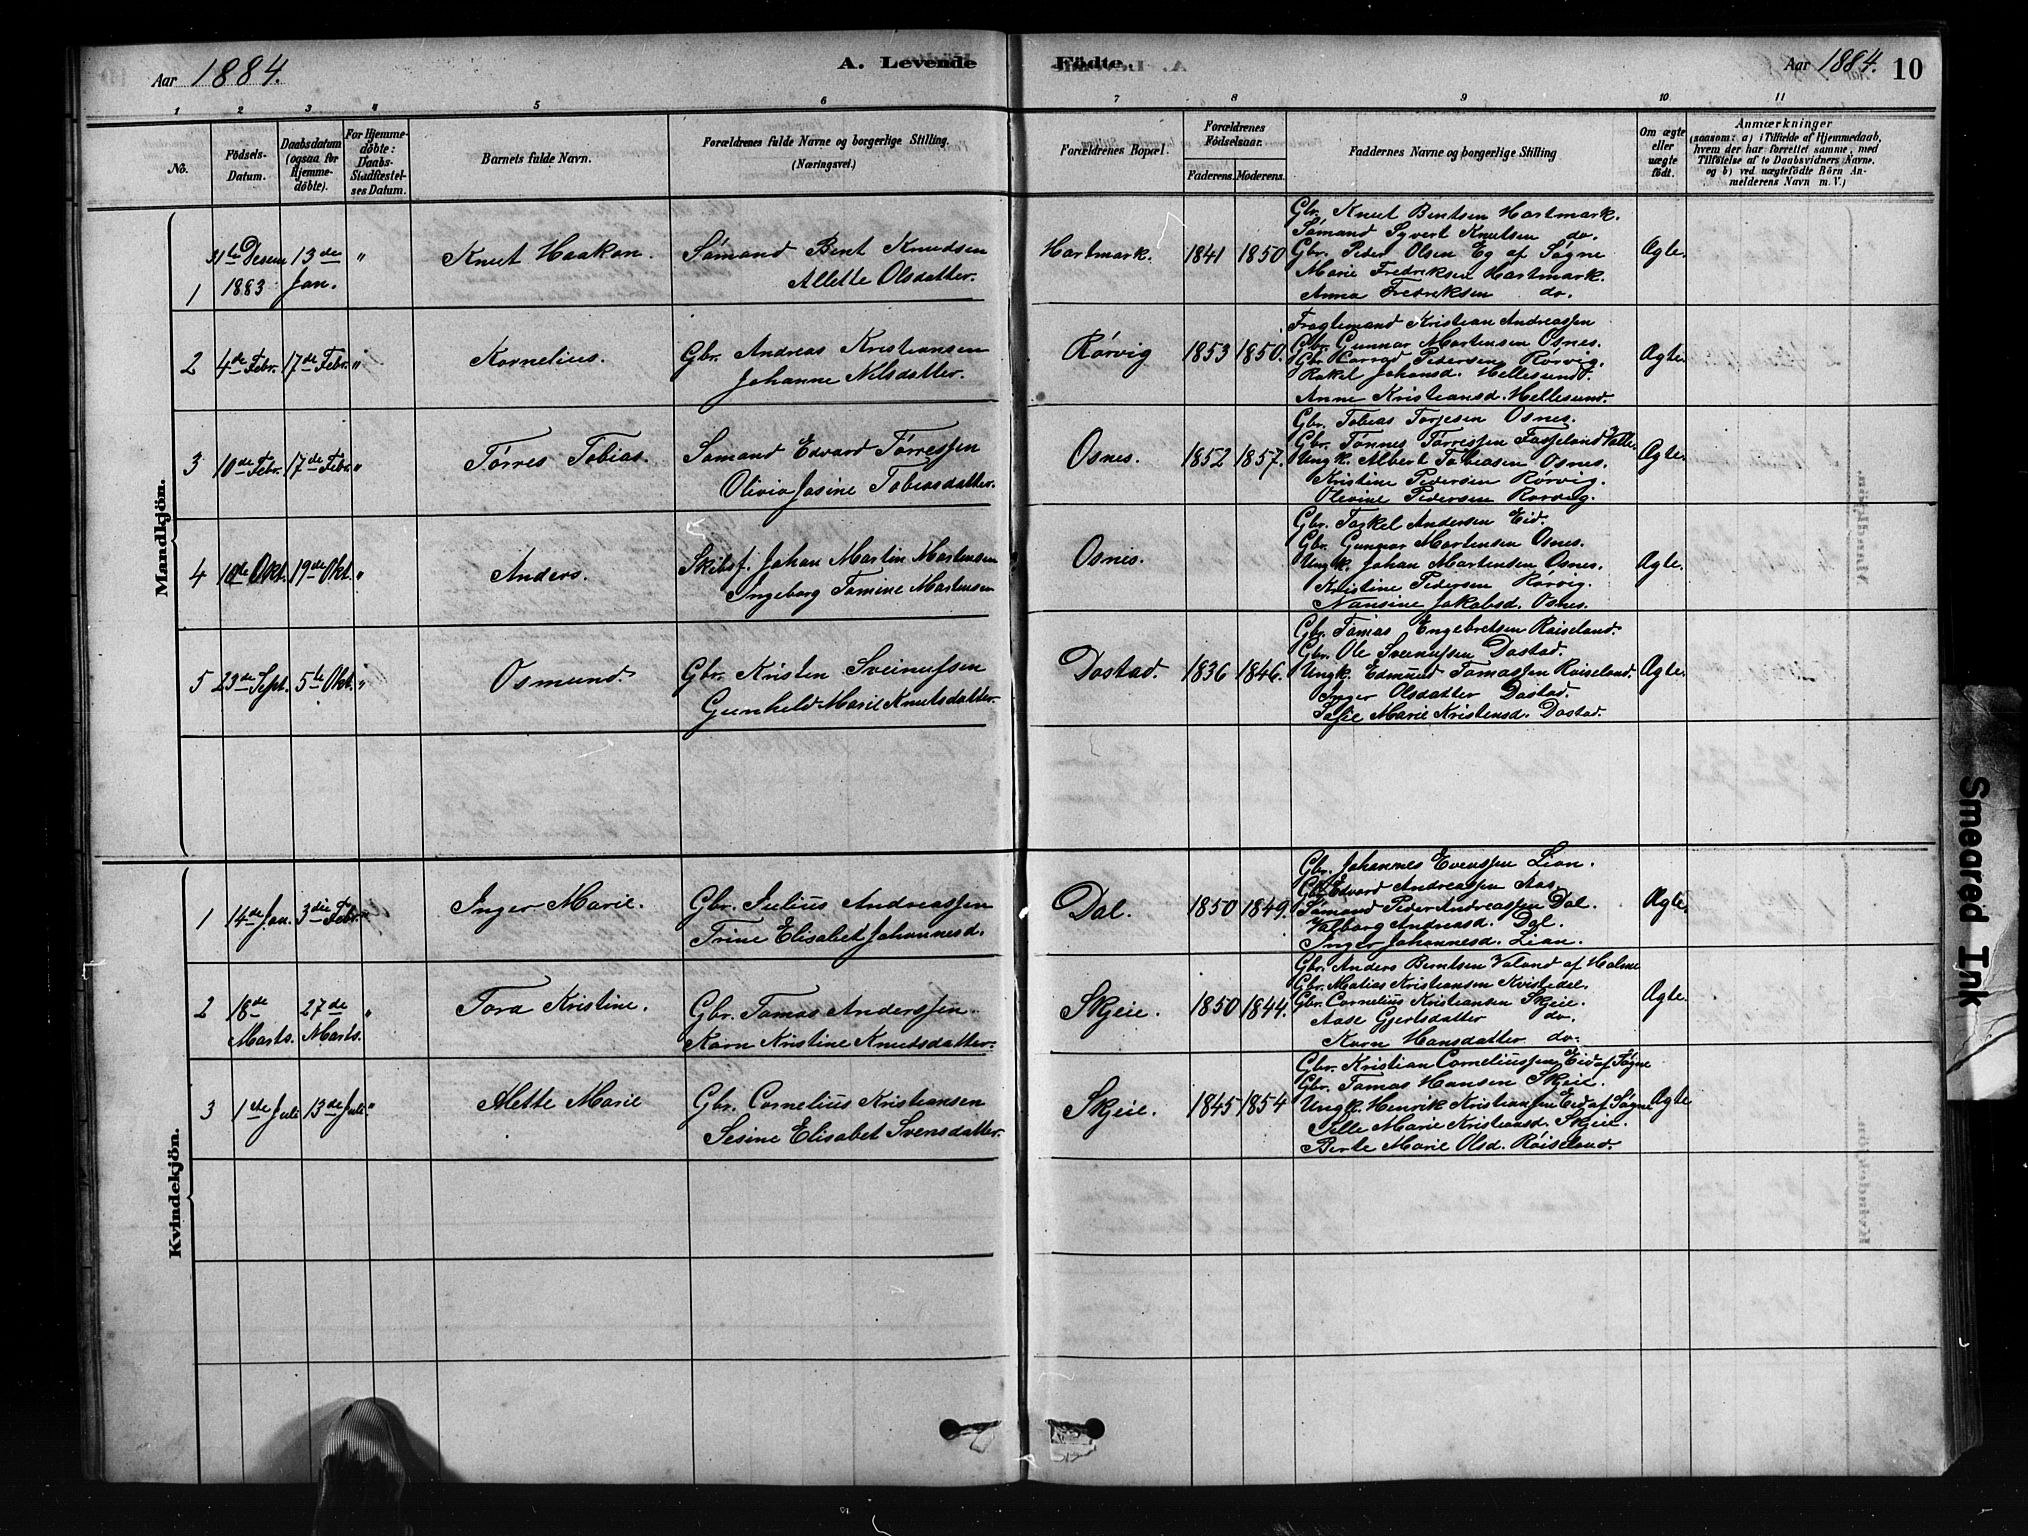 Aar 1884.
A. Levende
Födte.
Aar 1884.
10
1 2 3 4 5 6
7 8 9 10 11
No.
Födsels-
Datum.
Daabsdatum
(ogsaa for
Hjemme-
döbte).
For Hjemme-
döbte:
Daabs-
Stadfæstel-
ses Datum.
Barnets fulde Navn.
Forældrenes fulde Navne og borgerlige Stilling.
(Næringsvei.)
Forældrenes Bopæl.
Forældrenes
Födselsaar.
Faderens.
Moderens.
Faddernes Navne og borgerlige Stilling
Om ægte
eller
uægte
födt.
Anmærkninger
(saasom: a) i Tilfælde af Hjemmedaab,
hvem der har forrettet samme, med
Tilföielse af to Daabsvidners Navne,
og b) ved uægtefödte Börn An-
melderens Navn m. V.)
Mandkjön.
1
31te Desem
1883
13de
Jan.
"
Knut Haakon.
Sømand Bent Knudsen
Allette Olsdatter.
Hartmark.
1841
1850
Gbr. Knut Bentsen Hartmark.
Sømand Syvert Knutsen do.
Gbr. Peder Olsen Eg af Søgne
Marie Fredriksen Hartmark.
Anna Fredriksen do.
Ægte.
2
4de Febr.
17de Febr.
"
Kornelius.
Gbr. Andreas Kristiansen
Johanne Nilsdatter.
Rørvig
1853
1850.
Fragtemand Kristian Andreassen
Gbr. Gunnar Mortensen Osnes.
Gbr. Pedersen Rørvig.
Rakel Johansd. Hellesund.
Anne Kristiansd. Hellesund.
Ægte.
3
10de Febr.
17de Febr.
"
Tørres Tobias.
Sømand Edvard Tørressen
Olivia Josine Tobiasdatter.
Osnes.
1852
1857.
Gbr. Tobias Torjesen Osnes.
Gbr. Tønnes Tørressen Fasseland Valle.
Ungk. Albert Tobiasen Osnes.
Kristine Pedersen Rørvig.
Olevine Pedersen Rørvig.
Ægte.
4
10de Okt.
19de Okt.
"
Anders.
Skibsf. Johan Martin Mortensen
Ingeborg Tomine Mortensen
Osnes.
Gbr. Torkel Andersen Eid.
Gbr. Gunnar Mortensen Osnes.
Ungk. Johan Mortensen Osnes.
Kristine Pedersen Rørvig.
Nansine Jakobsd. Osnes.
Ægte.
5
23de Sept.
5te Okt.
"
Osmund.
Gbr. Kristen Sveinufsen
Gunheld Marie Knutsdatter.
Dostad.
1836
1846.
Gbr. Tomas Engebretsen Røiseland.
Gbr. Ole Sveinufsen Dostad.
Ungk. Edmund Tomassen Røiseland.
Inger Olsdatter Dostad.
Sofie Marie Kristensd. Dostad.
Ægte.
Kvindekjön.
1
14de Jan.
3die Febr.
"
Inger Marie.
Gbr. Julius Andreassen
Trine Elisabet Johannesd.
Dal.
1850
1849.
Gbr. Johannes Evenssen Lian.
Gbr. Edvard Andreassen Aas
Sømand Peder Andreassen Dal.
Valborg Andreasd. Dal.
Inger Johannesd. Lian.
Ægte.
2
18de
Marts.
27de
Marts.
"
Tora Kristine.
Gbr. Tomas Anderssen.
Karn Kristine Knutsdatter.
Skjeie.
1850
1844.
Gbr. Anders Berntsen Valand af Holme
Gbr. Matias Kristiansen Kvistedal.
Gbr. Cornelius Kristiansen Skjeie.
Aase Gjertsdatter do.
Karn Hansdatter do.
Ægte.
3
1ste Juli
13de Juli
"
Mette Marie
Gbr. Cornelius Kristiansen
Sesine Elisabet Svensdatter.
Skjeie.
1845
1854
Gbr. Kristian Corneliussen Eid af Søgne
Gbr. Tomas Hansen Skjeie.
Ungk. Henrik Kristiansen Eid af Søgne
Sille Marie Kristiansd. Skjeie.
Berte Marie Olsd. Røiseland.
Ægte
Smeared Ink